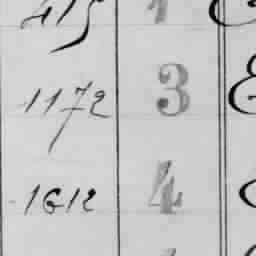 415 1
1172 3
1612 4